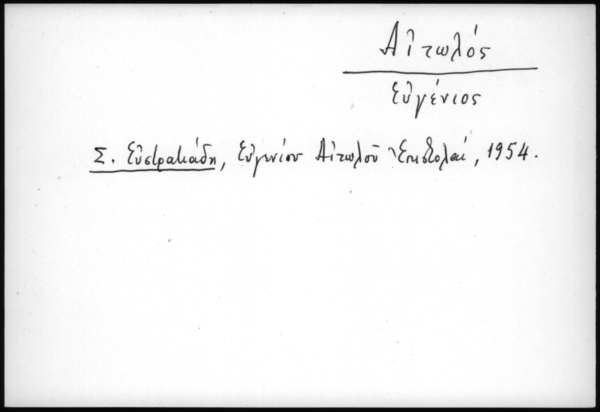 Αἰτωλός
Εὐγένιος
Σ. Εὐστρατιάδη, Εὐγενίου Αἰτωλοῦ Ἐπιστολαί, 1954.